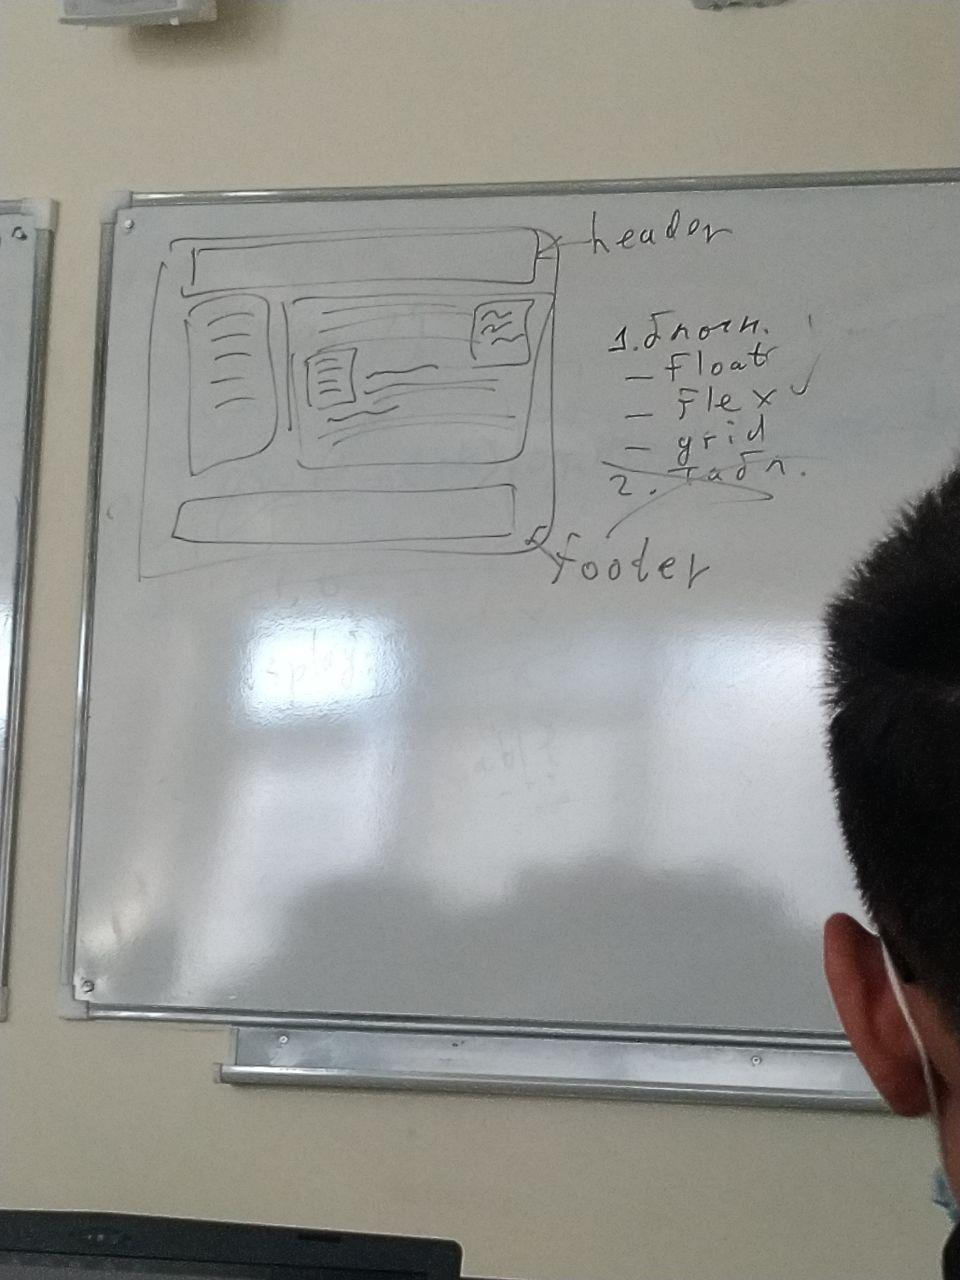 header
1. блочн.
- float
- flex ✓
- grid
2. табл.
footer